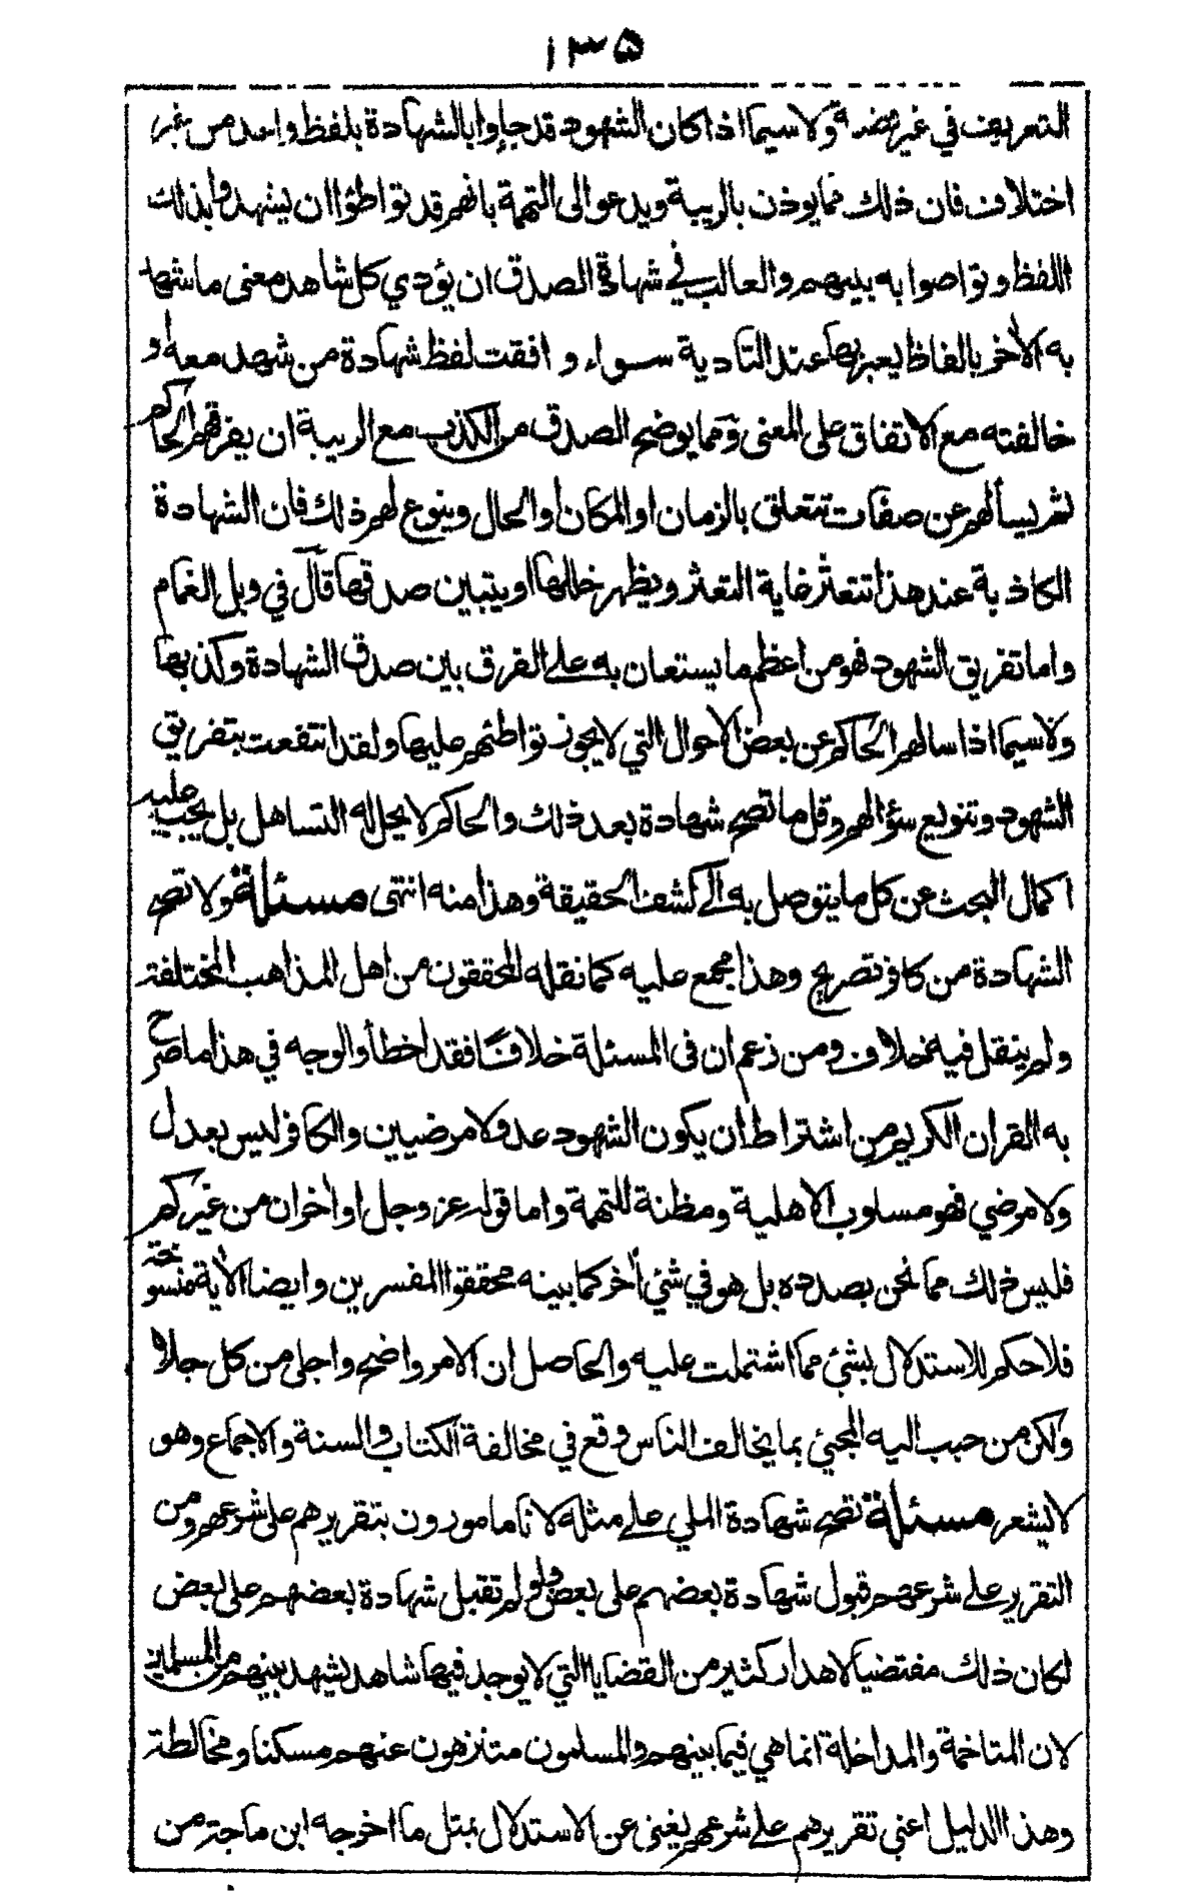 ١٣٥
التعريف في غير هذه ولا سيما اذا كان الشهود قد جاؤا بالشهادة بلفظ واحد من غير
اختلاف فان ذلك مما يوذن بالريبة ويدعو الى التهمة بانهم قد تواطؤا ان يشهدوا بذلك
اللفظ وتواصوا به بينهم والغالب في شهادة الصدق ان يؤدي كل شاهد معنى ما شهد
به الأخر بالفاظ يعبر بها عند التادية سواء وافقت لفظ شهادة من شهد معه او
خالفته مع الاتفاق على المعنى ومما يوضح الصدق من الكذب مع الريبة ان يفرقهم الحاكم
ثم يسألهم عن صفات تتعلق بالزمان او المكان أو الحال وينوع لهم ذلك فان الشهادة
الكاذبة عند هذا تتعثر غاية التعثر ويظهر خللها او يتبين صدقها قال في وبل الغمام
واما تفريق الشهود فهو من اعظم ما يستعان به على الفرق بين صدق الشهادة وكذبها
ولا سيما اذا سالهم الحاكم عن بعض الاحوال التي لا يجوز تواطئهم عليها ولقد انتفعت بتفريق
الشهود وتنويع سؤالهم وقل ما تصح شهادة بعد ذلك والحاكم لا يحل له التساهل بل يجب عليه
اكمال البحث عن كل ما يتوصل به الى كشف الحقيقة وهذا منه انتهى مسئلة ولا تصح
الشهادة من كافر تصريح وهذا مجمع عليه كما نقله المحققون من اهل المذاهب المختلفة
ولم ينقل فيه خلاف ومن زعم ان فى المسئلة خلافًا فقد اخطأ والوجه في هذا ما صرح
به القران الكريم من اشتراط ان يكون الشهود عدولا مرضيين والكافر ليس بعدل
ولا مرضي فهو مسلوب الاهلية ومظنة للتهمة واما قوله عز وجل او أخران من غيركم
فليس ذلك مما نحن بصدده بل هو في شئ أخر كما بينه محققوا المفسرين وايضا الأية منسوخة
فلا حكم للاستدلال بشئ مما اشتملت عليه والحاصل ان الامر واضح واجلى من كل جلا
ولكن من حبب اليه المجئ بما يخالف الناس وقع في مخالفة الكتاب والسنة والاجماع وهو
لا يشعر مسئلة تصح شهادة الملي على مثله لانا مامورون بتقريرهم على شرعهم ومن
التقرير على شرعهم قبول شهادة بعضهم على بعض ولو لم تقبل شهادة بعضهم على بعض
لكان ذلك مقتضيا لاهدار كثير من القضايا التي لا يوجد فيها شاهد يشهد بينهم من المسلمين
لان المتاخمة والمداخلة انما هي فيما بينهم والمسلمون متنزهون عنهم مسكنا ومخالطة
وهذا الدليل اعني تقريرهم على شرعهم يغنى عن الاستدلال بمثل ما اخرجه ابن ماجة من